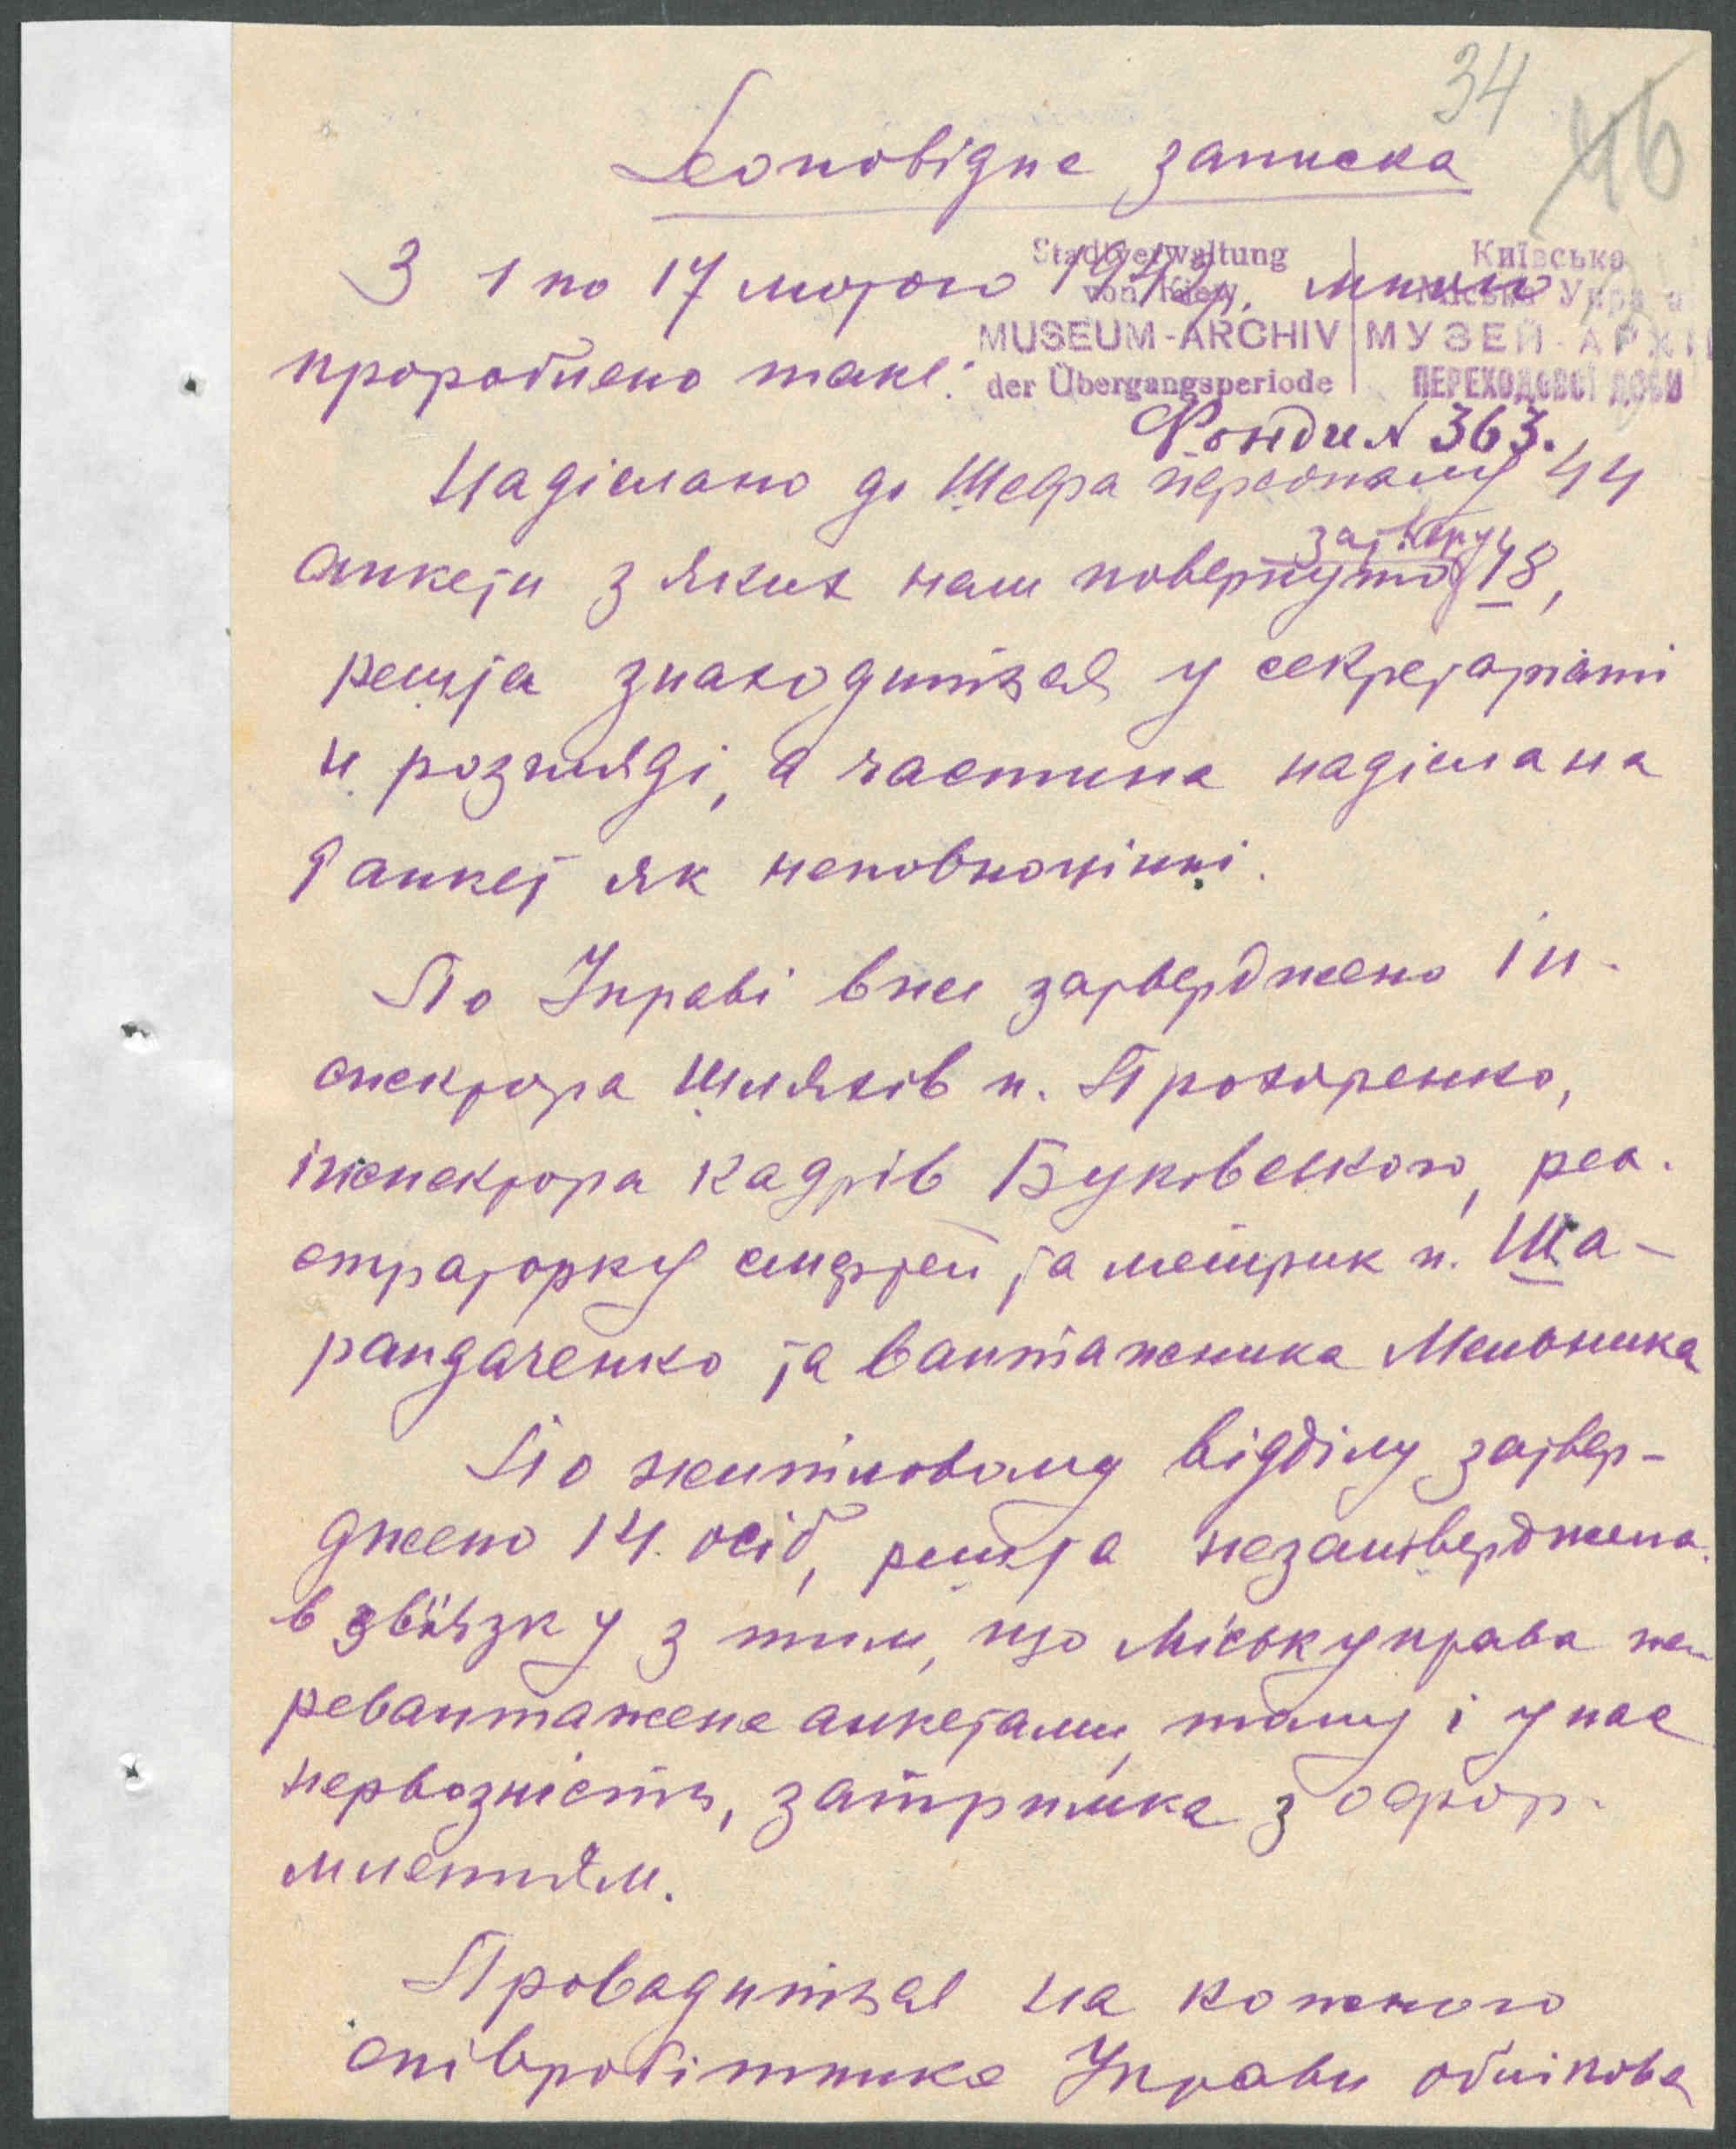 34
46
Доповідне записка
Stadtverwaltung von Kiew
MUSEUM-ARCHIV
der Übergangsperiode
Київська
Міська Управа
МУЗЕЙ-АРХІ
ПЕРЕХОДОВОЇ ДОБИ
З 1 по 17 лютого 1942 р. мною
пророблено таке:
Фонд № 363.
Надіслано до Шефа персоналу 44
анкети з яких нам повернуто затверж 18,
решта знаходиться у секретаріаті
н розгляді, а частина надіслана
анкет як неповноцінні.
По Управі вже затверджено ін-
спектора Шляхів п. Прохоренко,
інспектора кадрів Буковського, реэ-
страторку смертей та метрик п. Ша-
рандаченко та вантажника Мельника
По житловому відділу затвер-
джено 14 осіб, решта незатверджена
в звъязку з тим, що Міськуправа пе-
ревантажена анкетами, тому і у нас
нервозність, затримка з офор-
мленням.
Провадиться на кожного
співробітника Управи облікова